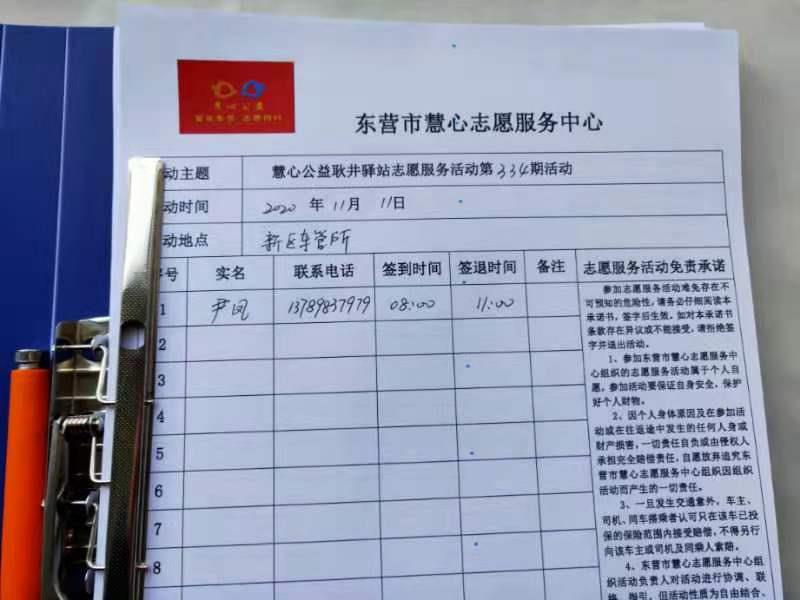 慧心公益
东营市慧心志愿服务中心
动主题 慧心公益耿井驿站志愿服务活动第334期活动
动时间 2020 年 11月 11日
动地点 新区车管所
号 实名 联系电话 签到时间 签退时间 备注 志愿服务活动免责承诺
1 尹凤 13789837979 08:00 11:00
2
3
4
5
6
7
8
参加志愿服务活动难免存在不
可预知的危险性,请务必仔细阅读本
承诺书,签字后生效。如对本承诺书
条款存在异议或不能接受,请拒绝签
字并退出活动。
1、参加东营市慧心志愿服务中
心组织的志愿服务活动属于个人自
愿,参加活动要保证自身安全,保护
好个人财物。
2、因个人身体原因及在参加活
动或在往返途中发生的任何人身或
财产损害,一切责任自负或由侵权人
承担完全赔偿责任,自愿放弃追究东
营市慧心志愿服务中心组织因组织
活动而产生的一切责任。
3、一旦发生交通意外,车主、
司机、同车搭乘者认可只在该车已投
保的保险范围内接受赔偿,不得另行
向该车主或司机及同乘人索赔。
4、东营市慧心志愿服务中心组
织活动负责人对活动进行协调、联
络、指引,但活动性质为自由结合、